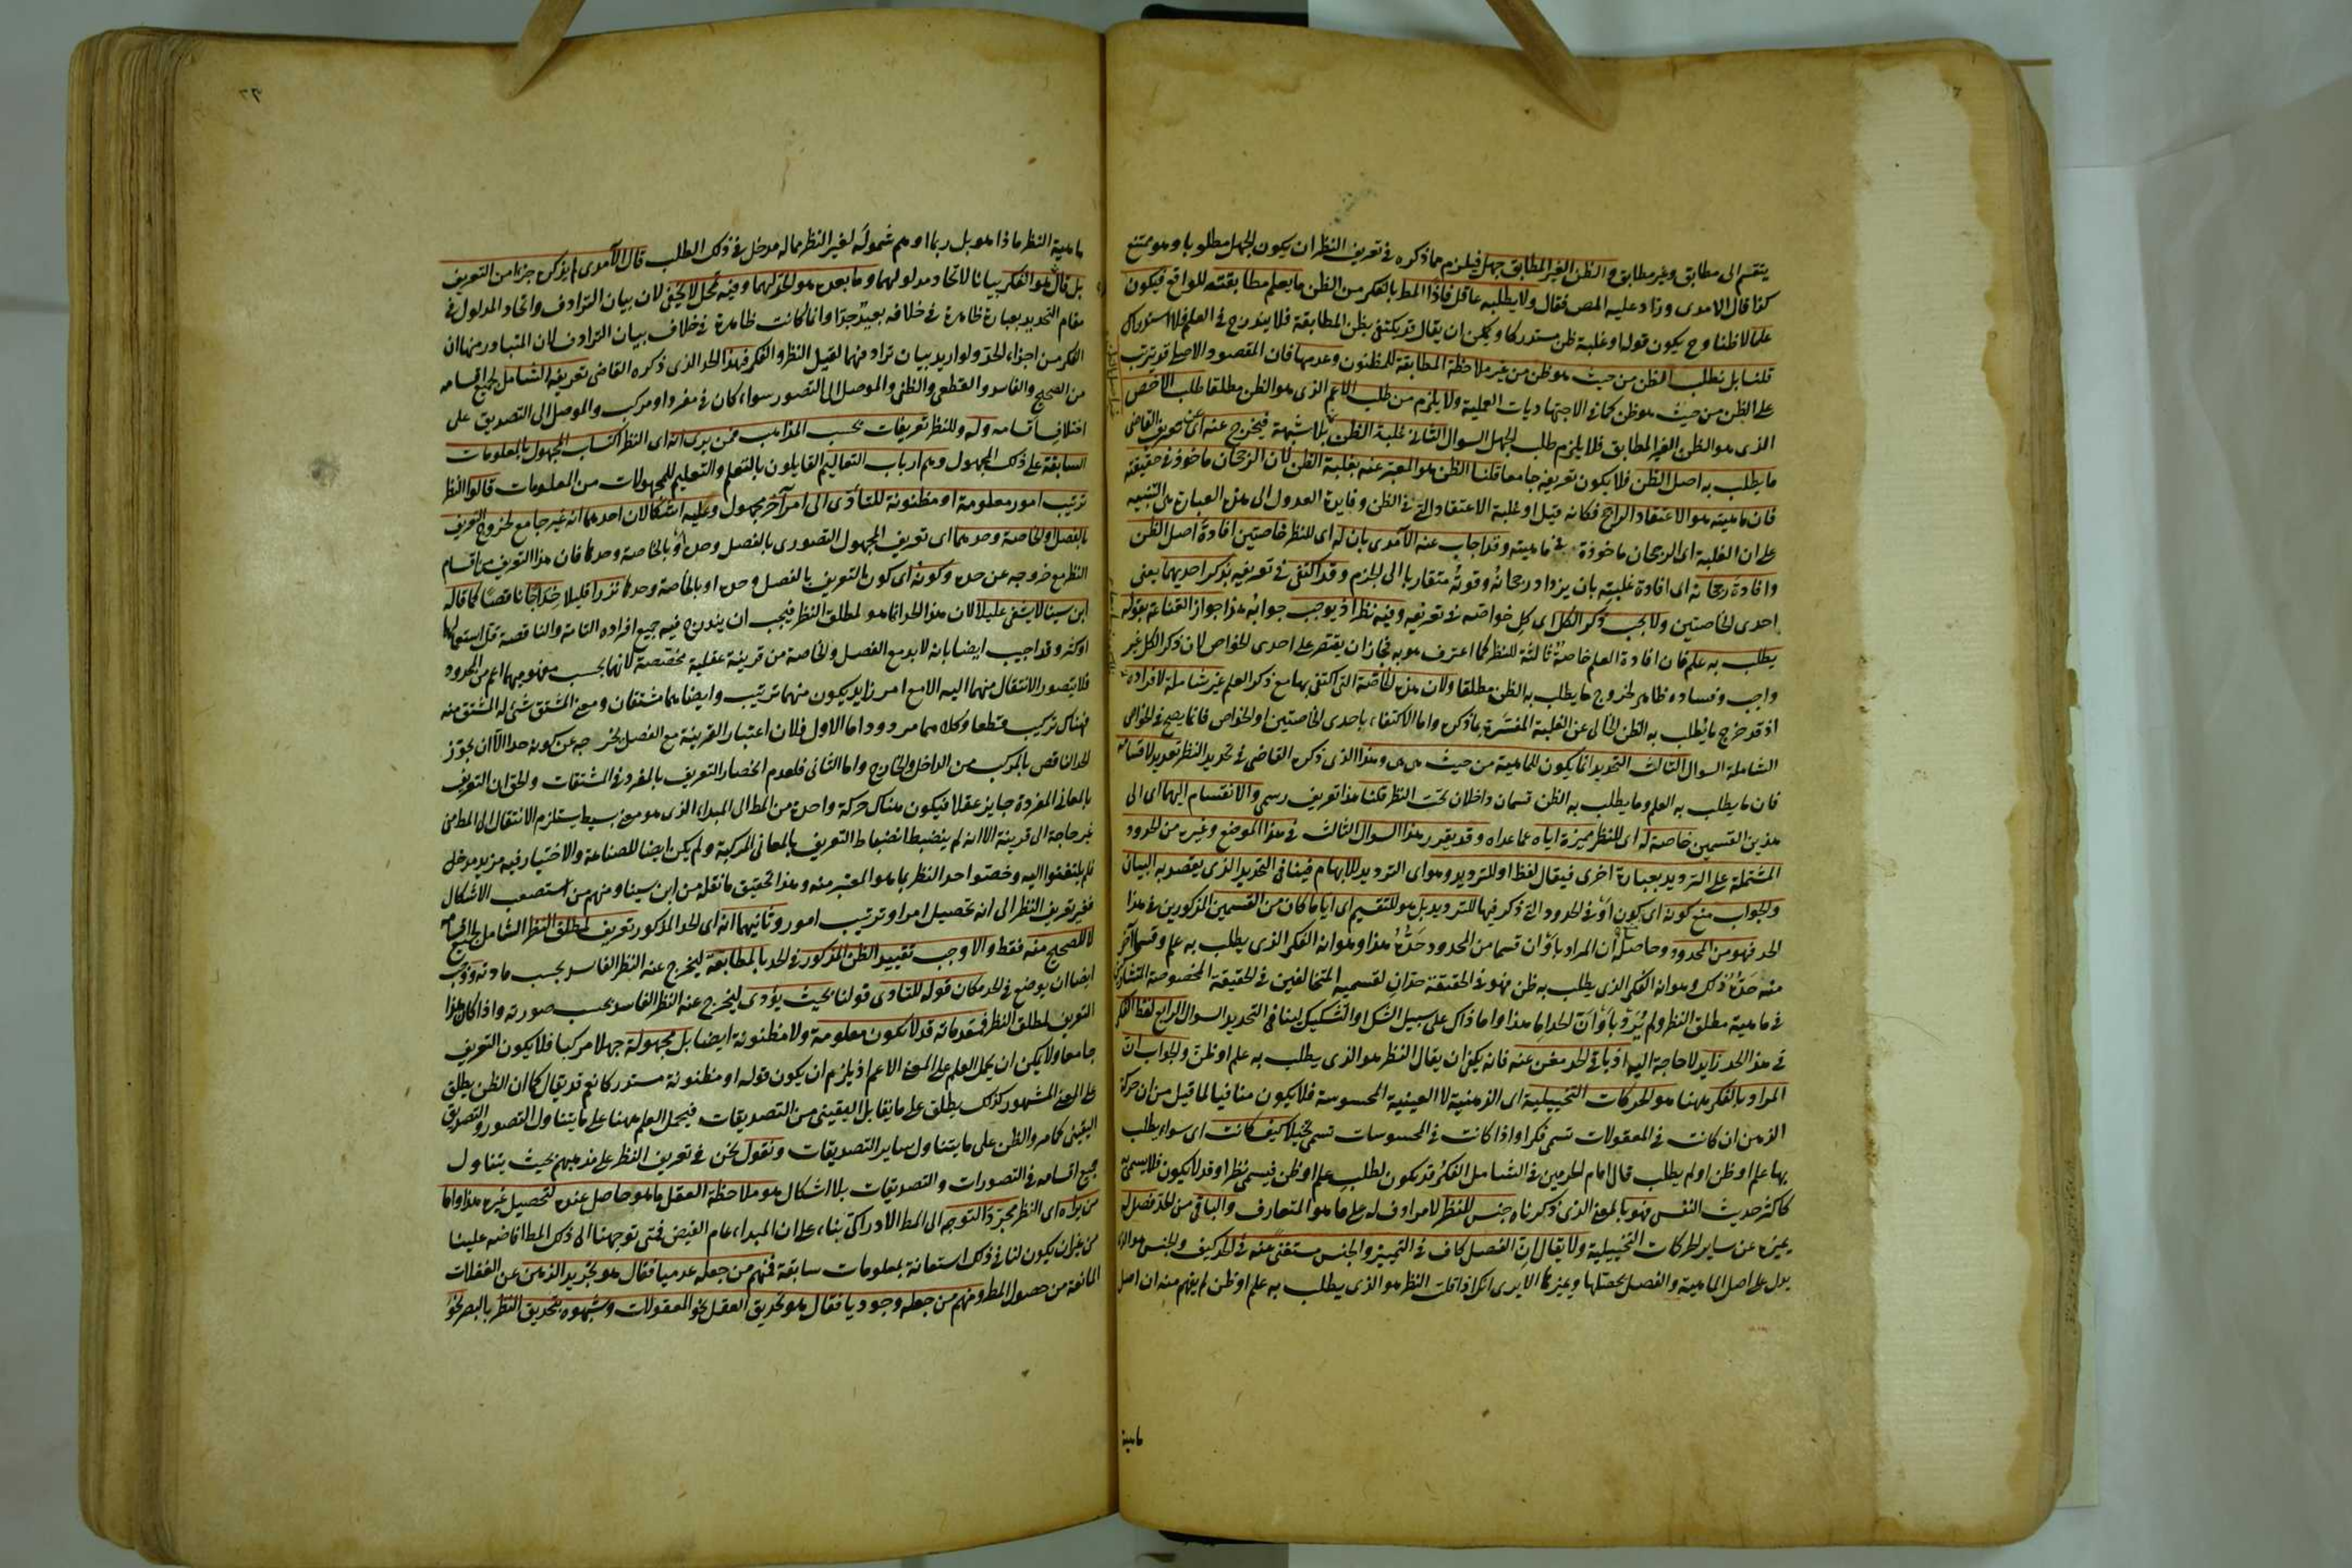 ينقسم الى مطابق وغير مطابق والظن الغير المطابق جهل فيلزم مما ذكره في تعريف النظر ان يكون الجهل مطلوبا وهو ممتنع
كذا قال الامدى وزاد عليه المص فقال ولا يطلبه عاقل فاذا المط بالفكر من الظن ما يعلم مطابقته للواقع فيكون
علما لا ظنا وح يكون قوله او غلبة ظن مستدركا ويمكن ان يقال قد يكتفى بظن المطابقة فلا يندرج في العلم فلا استدراك
قلنا بل يطلب الظن من حيث هو ظن من غير ملاحظة المطابقة للمظنون وعدمها فان المقصود الاصلى قد يترتب
على الظن من حيث هو ظن كما في الاجتهاديات العملية ولا يلزم من طلب الاعم الذى هو الظن مطلقا طلب الاخص
الذى هو الظن الغير المطابق فلا يلزم طلب الجهل السوال الثانى غلبة الظن بلا شبهة فيخرج عنه اى عن تعريف القاضى
ما يطلب به اصل الظن فلا يكون تعريفه جامعا قلنا الظن هو المعبر عنه بغلبة الظن لان الرجحان ماخوذ في حقيقته
فان ماهيته هو الاعتقاد الراجح فكانه قيل او غلبة الاعتقاد التى في الظن وفايدة العدول الى هذه العبارة هى التنبيه
على ان الغلبة اى الرجحان ماخوذة في ماهيته وقد اجاب عنه الآمدى بان له اى للنظر خاصتين افادة اصل الظن
وافادة رجحانه اى افادة غلبته بان يزداد رجحانه وقوته متقاربا الى الجزم وقد اكتفى في تعريفه بذكر احديهما يعنى
احدى الخاصتين ولا يجب ذكر الكل اى كل خواصه في تعريفه وفيه نظر اذ يوجب جوابه هذا جواز القناعة بقوله
يطلب به علم فان افادة العلم خاصة ثالثة للنظر كما اعترف هو به فجاز ان يقتصر على احدى الخواص لان ذكر الكل غير
واجب وفساده ظاهر لخروج ما يطلب به الظن مطلقا ولان هذه الخاصة التى اكتفى بها مع ذكر العلم غير شاملة لافراده
اذ قد خرج ما يطلب به الظن الخالى عن الغلبة المفسرة بما ذكره واما الاكتفاء باحدى الخاصتين او الخواص فانما يصح في الخواص
الشاملة السوال الثالث التحديد انما يكون للماهية من حيث هى هى وهذا الذى ذكره القاضى في تحديد النظر تعديد لاقسامه
فان ما يطلب به العلم وما يطلب به الظن قسمان داخلان تحت النظر قلنا هذا تعريف رسمى والانقسام اليهما اى الى
هذين القسمين خاصة له اى للنظر مميزة اياه عما عداه وقد يقرر هذا السوال الثالث في هذا الموضع وغيره من الحدود
المشتملة على الترديد بعبارة اخرى فيقال لفظ او للترديد وهو اى الترديد للابهام فينافى التحديد الذى يقصد به البيان
والجواب منع كونه اى كون او في الحدود التى ذكر فيها للترديد بل هو للتقسيم اى ايا ما كان من القسمين المذكورين في هذا
الحد فهو من المحدود وحاصله ان المراد باو ان قسما من المحدود حده هذا وهو انه الفكر الذى يطلب به علم وقسما آخر
منه حده ذلك وهو انه الفكر الذى يطلب به ظن فهو في الحقيقة حدان لقسميه المتخالفين في الحقيقة المخصوصة المتشاركين
في ماهية مطلق النظر ولم يرد باو ان الحد اما هذا واما ذاك على سبيل الشك او التشكيك لينافى التحديد السوال الرابع لفظ الفكر
في هذا الحد زايد لا حاجة اليه اذ باقى الحد مغن عنه فانه يكفى ان يقال النظر هو الذى يطلب به علم او ظن والجواب ان
المراد بالفكر ههنا هو الحركات التخييلية اى الذهنية لا العينية المحسوسة فلا يكون منافيا لما قيل من ان حركة
الذهن ان كانت في المعقولات تسمى فكرا واذا كانت في المحسوسات تسمى تخيلا كيف كانت اى سواء يطلب
بها علم او ظن او لم يطلب قال امام الحرمين في الشامل الفكر قد يكون لطلب علم او ظن فيسمى نظرا وقد لا يكون فلا يسمى به
كاكثر حديث النفس فهو بالمعنى الذى ذكرناه جنس للنظر لا مرادف له على ما هو المتعارف والباقى من الحد فصل له
يميزه عن ساير الحركات التخييلية ولا يقال ان الفصل كاف في التمييز والجنس مستغنى عنه في الحد كيف والجنس هو الذى
يدل على اصل الماهية والفصل يحصلها ويميزها الا يرى انك اذا قلت النظر هو الذى يطلب به علم او ظن لم يفهم منه ان اصل
ماهية
٢٣
ماهية النظر ماذا هو بل ربما اوهم شموله لغير النظر مما له مدخل في ذلك الطلب قال الآمدى لم يذكره جزءا من التعريف
بل قال هو الفكر بيانا لاتحاد مدلولهما وما بعده هو الحد لهما وفيه تمحل لا يخفى لان بيان الترادف واتحاد المدلول في
مقام التحديد بعبارة ظاهرة في خلافه بعيد جدا وانما كانت ظاهرة في خلاف بيان الترادف لان المتبادر منها ان
الفكر من اجزاء الحد ولو اريد بيان ترادفهما لقيل النظر والفكر فهذا الحد الذى ذكره القاضى تعريفه الشامل لجميع اقسامه
من الصحيح والفاسد والقطعى والظنى والموصل الى التصور سواء كان في مفرد او مركب والموصل الى التصديق على
اختلاف اقسامه وله وللنظر تعريفات بحسب المذاهب فمن يرى انه اى النظر اكتساب المجهول بالمعلومات
السابقة على ذلك المجهول وهم ارباب التعاليم القايلون بالتعلم والتعليم للمجهولات من المعلومات قالوا النظر
ترتيب امور معلومة او مظنونة للتأدى الى امر آخر مجهول وعليه اشكالان احدهما انه غير جامع لخروج التعريف
بالفصل والخاصة وحدهما اى تعريف المجهول التصورى بالفصل وحده او بالخاصة وحدها فان هذا التعريف من اقسام
النظر مع خروجه عن حده وكونه اى كون التعريف بالفصل وحده او بالخاصة وحدها نزرا قليلا خداجا ناقصا كما قاله
ابن سينا لا يشفى عليلا لان هذا الحد انما هو لمطلق النظر فيجب ان يندرج فيه جميع افراده التامة والناقصة قل استعمالها
او كثر وقد اجيب ايضا بانه لا بد مع الفصل والخاصة من قرينة عقلية مخصصة لانهما بحسب مفهومهما اعم من المحدود
فلا يتصور الانتقال منهما اليه الا مع امر زايد يكون منهما ترتيب وايضا هما مشتقان ومعنى المشتق شئ له المشتق منه
فهناك تركيب قطعا وكلاهما مردود اما الاول فلان اعتبار القرينة مع الفصل يخرجه عن كونه حدا الا ان يجوز
الحد الناقص بالمركب من الداخل والخارج واما الثانى فلعدم انحصار التعريف بالمفرد في المشتقات والحق ان التعريف
بالمعانى المفردة جايز عقلا فيكون هناك حركة واحدة من المط الى المبداء الذى هو معنى بسيط يستلزم الانتقال الى المط من
غير حاجة الى قرينة الا انه لم ينضبط انضباط التعريف بالمعانى المركبة ولم يكن ايضا للصناعة والاختيار فيه مزيد مدخل
فلم يلتفتوا اليه وخصوا حد النظر بما هو المعتبر منه وهذا تحقيق ما نقله من ابن سينا ومنهم من استصعب الاشكال
فغير تعريف النظر الى انه تحصيل امر او ترتيب امور وثانيهما انه اى الحد المذكور تعريف لمطلق النظر الشامل لجميع اقسامه
لا للصحيح منه فقط والا وجب تقييد الظن المذكور في الحد بالمطابقة ليخرج عنه النظر الفاسد بحسب مادته ووجب
ايضا ان يوضع في الحد مكان قوله للتادى قولنا بحيث يؤدى ليخرج عنه النظر الفاسد بحسب صورته واذا كان هذا
التعريف لمطلق النظر فمقدماته قد لا تكون معلومة ولا مظنونة ايضا بل مجهولة جهلا مركبا فلا يكون التعريف
جامعا ولا يمكن ان يحمل العلم على المعنى الاعم اذ يلزم ان يكون قوله او مظنونة مستدركا نعم قد يقال كما ان الظن يطلق
على المعنى المشهور كذلك يطلق على ما يقابل اليقينى من التصديقات فيحمل العلم ههنا على ما يتناول التصور والتصديق
اليقينى كما مر والظن على ما يتناول ساير التصديقات ونقول نحن في تعريف النظر على مذهبهم بحيث يتناول
جميع اقسامه في التصورات والتصديقات بلا اشكال هو ملاحظة العقل ما هو حاصل عنده لتحصيل غيره هذا واما
من يراه اى النظر مجرد التوجه الى المط الادراكى بناء على ان المبداء عام الفيض فمتى توجهنا الى ذلك المط افاضه علينا
من غير ان يكون لنا في ذلك استعانة بمعلومات سابقة فمنهم من جعله عدميا فقال هو تجريد الذهن عن الغفلات
المانعة من حصول المط ومنهم من جعله وجوديا فقال هو تحديق العقل نحو المعقولات وشبهوه بتحديق النظر بالبصر نحو